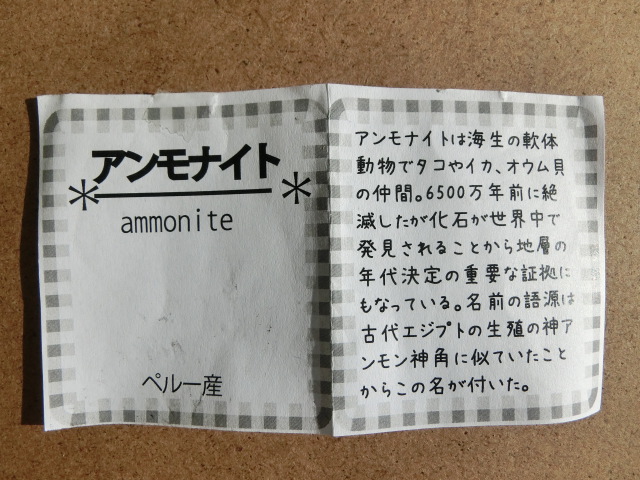 アンモナイト
＊ ＊
ammonite
ペルー産
アンモナイトは海生の軟体
動物でタコやイカ、オウム貝
の仲間。6500万年前に絶
滅したが化石が世界中で
発見されることから地層の
年代決定の重要な証拠に
もなっている。名前の語源は
古代エジプトの生殖の神ア
ンモン神角に似ていたこと
からこの名が付いた。